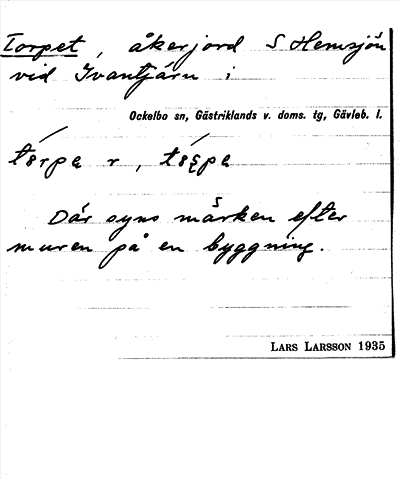 Torpet, åkerjord S Hemsjön
vid Ivantjärn i
Ockelbo sn, Gästriklands v. doms. tg, Gävleb. l.
Där syns märken efter
muren på en byggning.
LARS LARSSON 1935